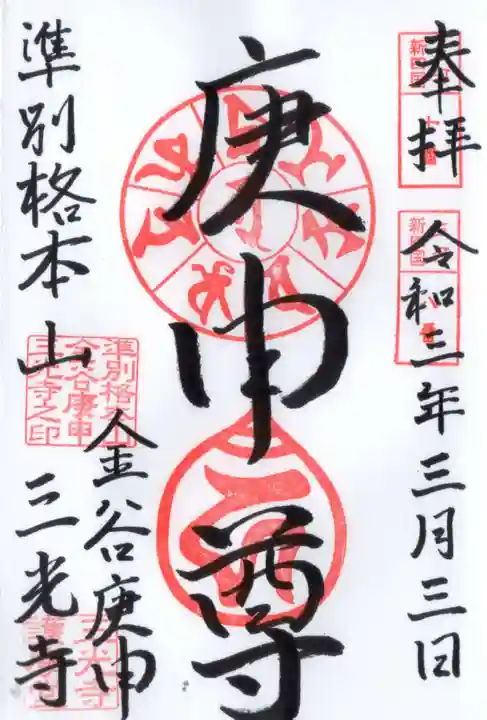 奉拝
令和三年三月三日
庚申尊
準別格本山
金谷庚申
三光寺
準別格本山
金谷庚申
三光寺之印